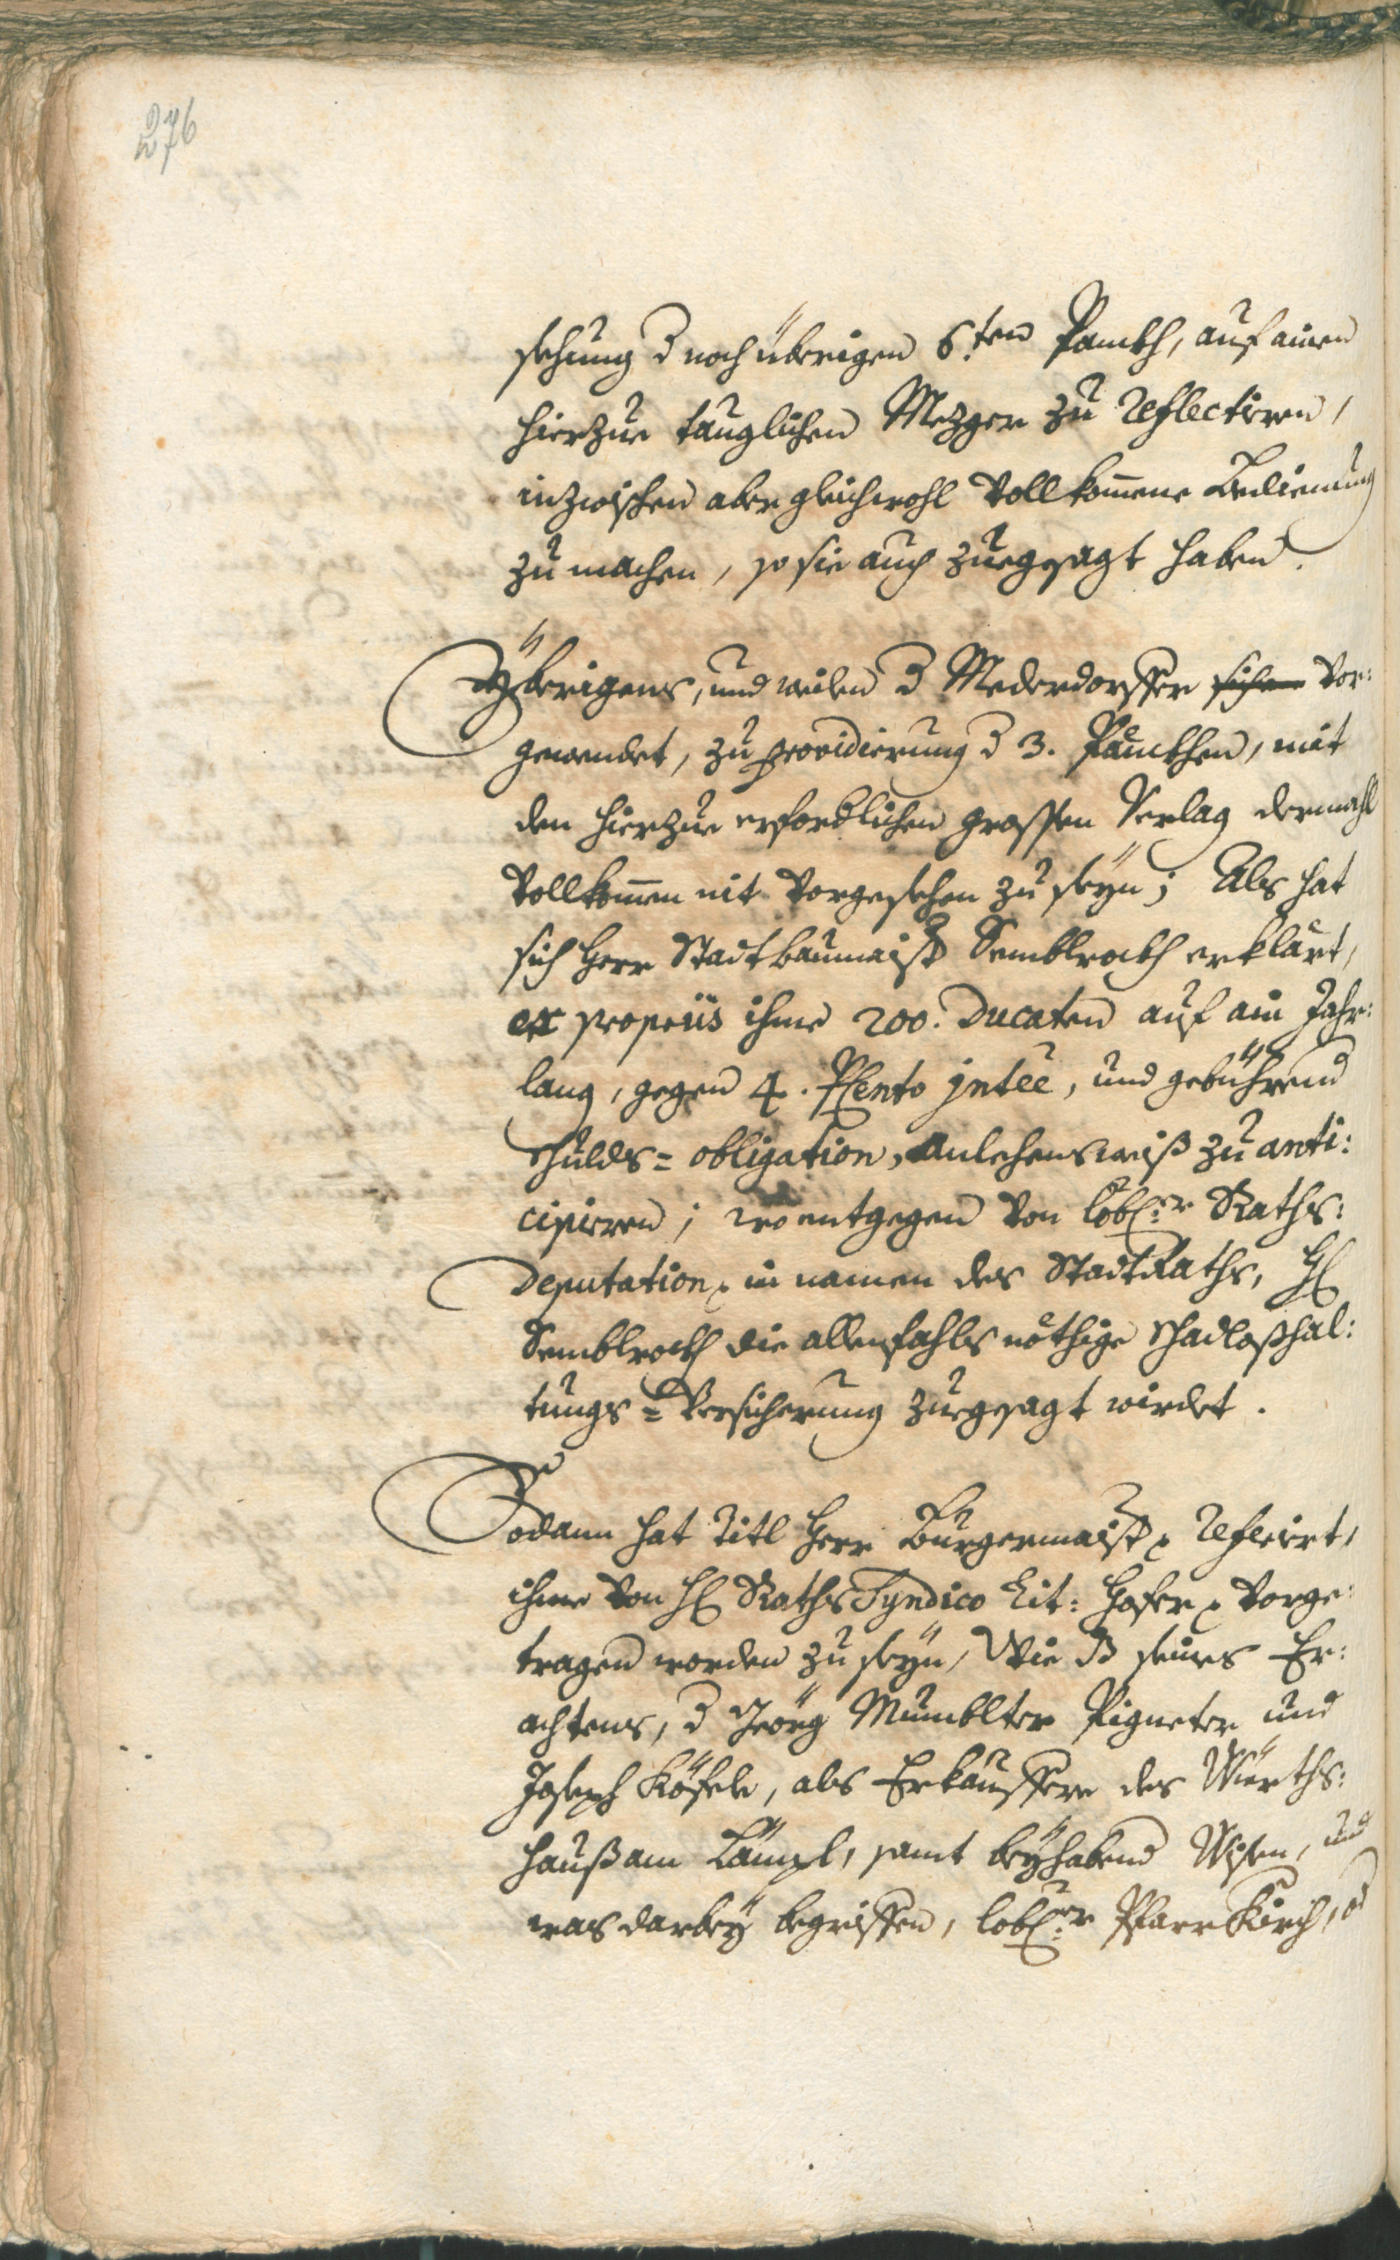 276
sehung d noch überigen 6.ten Panckh, auf ainen
hierzue tauglichen Mezger zu reflectiren,
inzwischen aber gleichwohl vollkom̄ene Bedienung
zu machen, so sie auch zuegesagt haben.
Yberigens, und weilen d Mederdorffer vor:
gewendet, zu providierung d 3. Pänckhen, mit
den hierzue erfordlichen grossen Verlag dermahl
vollkom̄en nit vorgesehen zu seÿn; Als hat
sich Herr Stadtbaumaistr Semblrockh erklärt,
ex propriis ihme 200. Ducaten auf ain Jahr:
lang, gegen 4. PCento jntee, und gebührend
schulds= obligation, Anlehensweiß zu anti:
cipiren; wo entgegen von lobl:er Raths:
Deputation in namen des StadtRaths, Hl
Semblrockh die allenfahls nöthige schadloßhal:
tungs= Versicherung zuegesagt wirdet.
Sodann hat Titl Herr Burgermaistr referirt,
ihme von Hl Raths Syndico Lit: Hofer vorge:
tragen worden zu seÿn, Wie dß seines Er:
achtens, d Geörg Mumblter Pigneter und
Joseph Köfele, als Erkauffere des Würths:
hauß am Lämpl, samt beÿhabend Wisen, und
was darbeÿ begriffen, lobl:er Pfarr Kirch, d